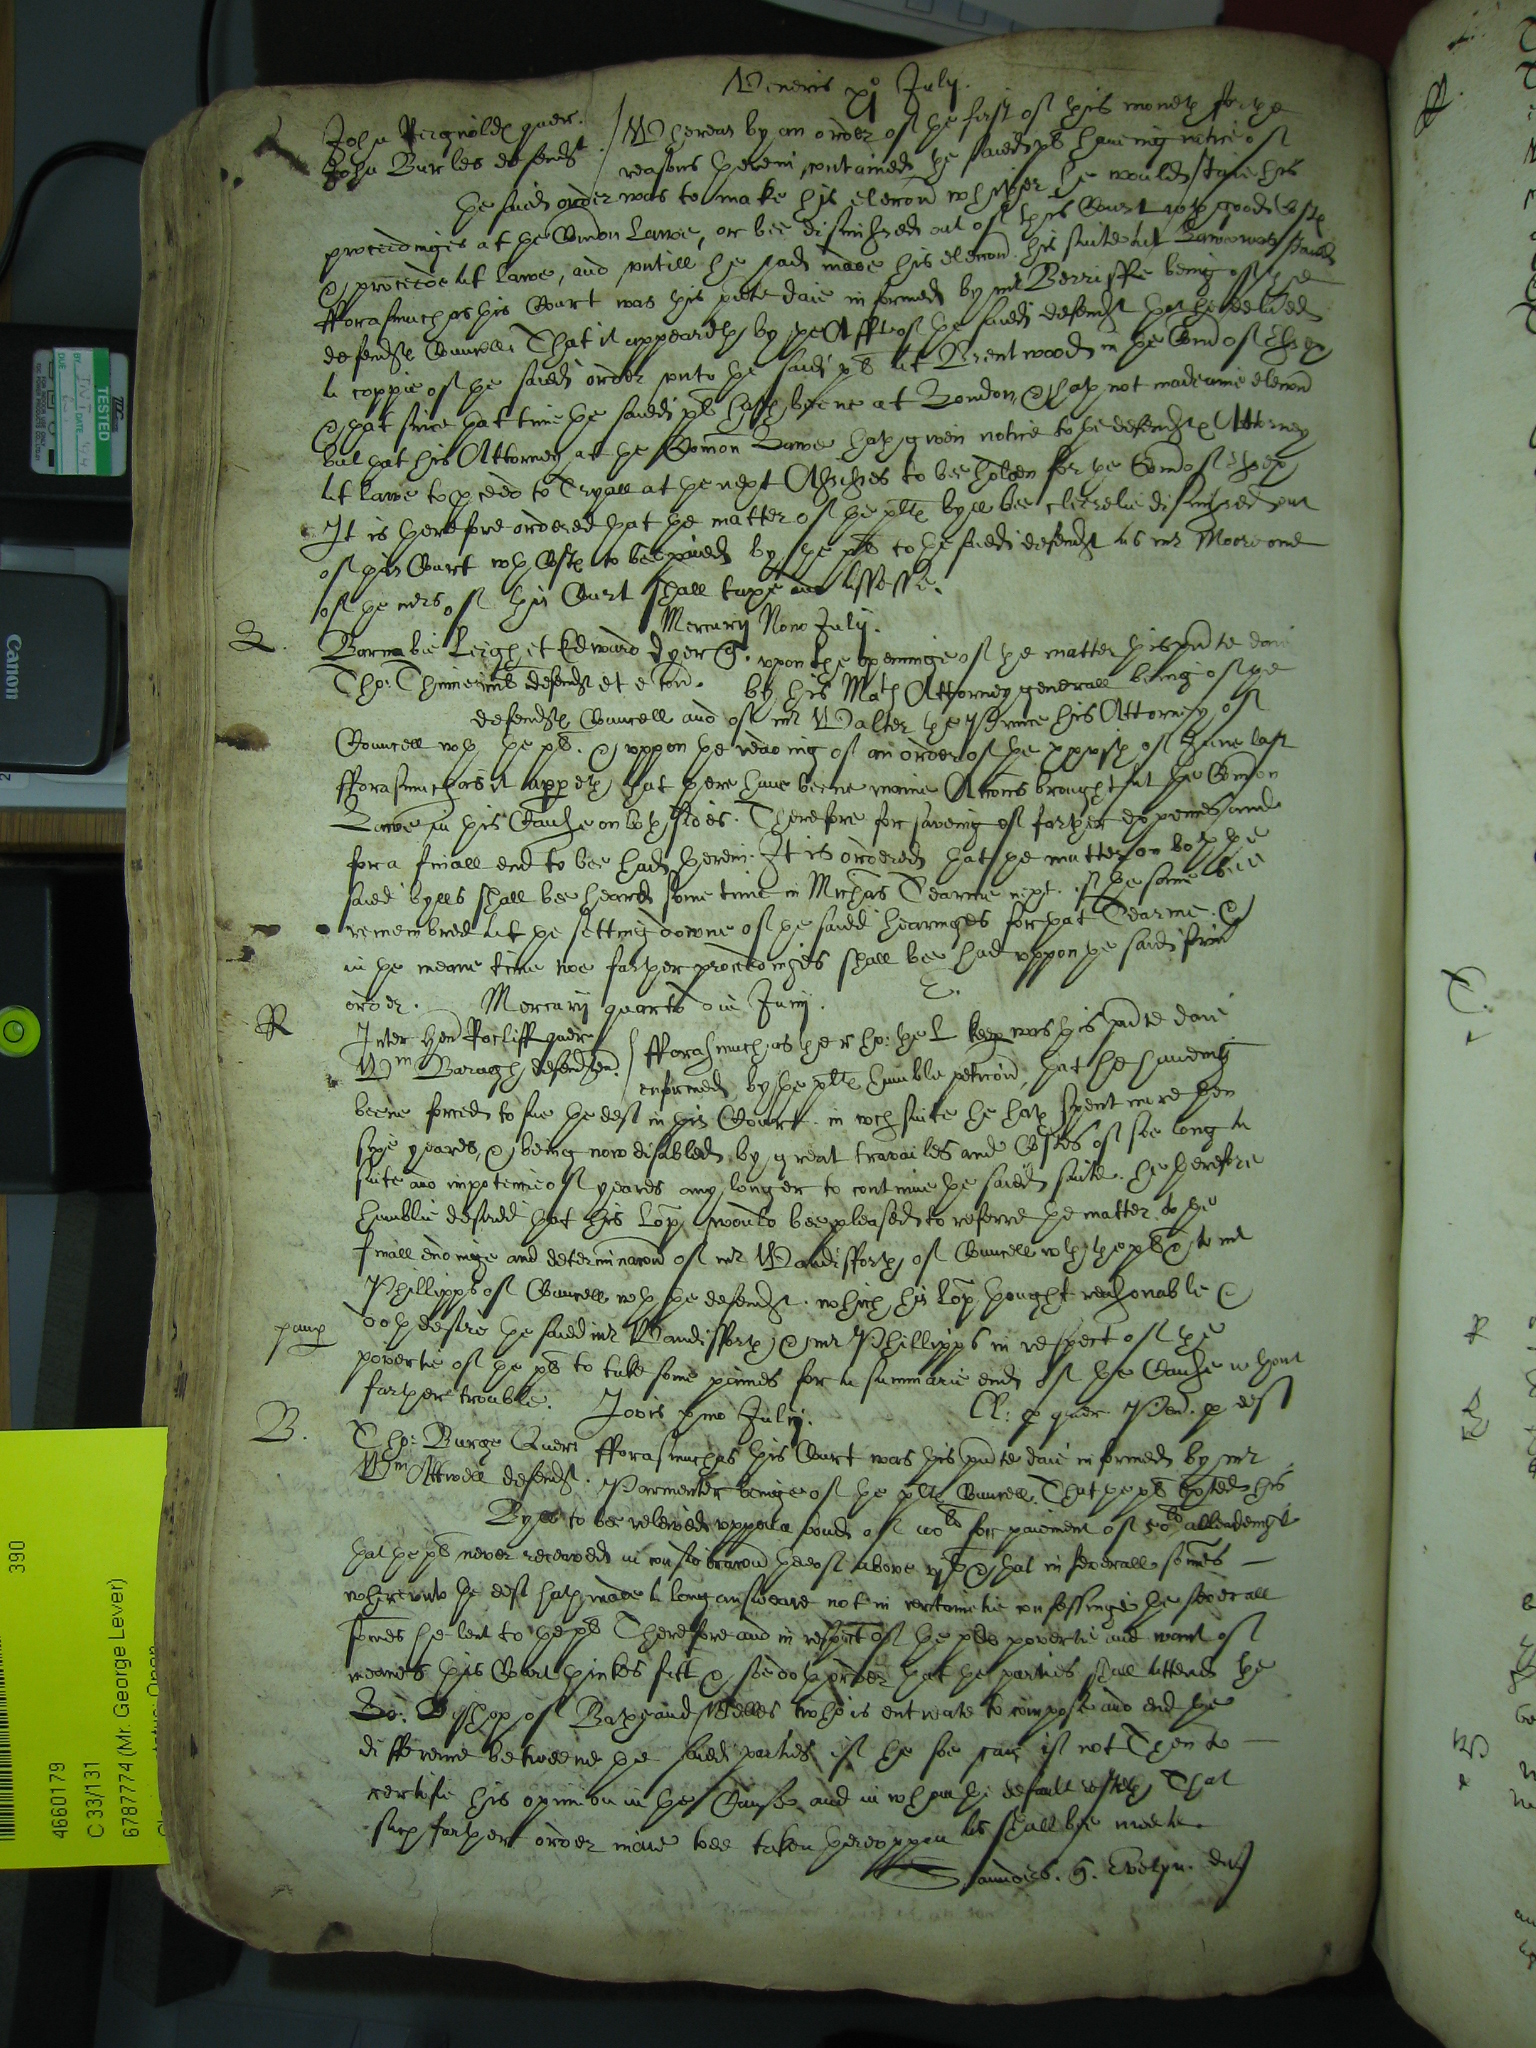 Veneris xj° July.
John Reignoldℯ quer.
John Burles defendt.
Whereas by an order of the first of this moneth for the
reasons therein contained, the saied pl haveing notice of
the saied order was to make his eleccon whether he would staie his
proceedinges at the Comon Lawe, or bee dismissed out of this Court wth good Costℯ
& proceede at lawe, and untill he had made his eleccon his suite at Lawe was staied
fforasmuch as this Court was this pnte daie informed by mr Berriffe being of the
defendtℯ Councell, That it appeareth by the Afft of the saied defendt that he delivered
a coppie of the saied order unto the saied pl at Brentwood in the Com of Essex
& that since that time the saied pl hath beene at London, & hath not made anie eleccon
but that his Attorney at the Comon Lawe hath given notice to the defendtℯ Attorney
at lawe to pceed to Tryall at the next Assises to bee holden for the Com of Essex
It is therefore ordered that the matter of the pltℯ byll bee cleerelie dismissed out
of this Court wth Costℯ to bee paied by the pl to the saied defendt as mr Moore one
of the mrs of this Court shall taxe and assesse.
Mercurij Nono July.
L.
Barnabie Leigh et Edward Dyer G.
Tho: Thinne mil defendt et e con.
upon the openinge of the matter this pnte daie
by his Mats Attorney generall being of the
defendtℯ Councell and of mr Walter the Prince his Attorney of
Councell wth the pl. & uppon the reading of an order of the xxvth of June last
fforasmuch as it appeth that there have beene manie Accons brought at the Comon
Lawe in this Cause on both sides. Therefore for saveing of further expences and
for a finall end to bee had therein. It is ordered that the matter on both the
saied bylls shall bee heard some time in Michas Tearme next. if the same bee
remembred at the setting downe of the saied hearinges for that Tearme. &
in the meane time noe further proceedinges shall bee had uppon the saied former
order.
Mercurij quarto die Junij.
R
Inter Hen Rocliff quer
Wm Baragh defenden.
fforasmuch as the r. ho: the L keep was this pnte daie
enformed by the pltℯ humble peticon, that he haveing
beene forced to sue the deft in this Court. in wch suite he hath spent more then
sixe yeares, & being now disabled by great travailes and Costes of soe long a
suite and impotencie of yeares any longer to continue the saied suite. he therefore
humblie desired that his Lop would bee pleased to referre the matter to the
finall endinge and determinacon of mr Wandifforth of Councell wth the pl & to mr
Phillipps of Councell wth the defendt. which his Lop thought reasonable &
doth desire the saied mr Wandifforth & mr Phillipps in respect of the
paup
povertie of the pl to take some paines for a summarie end of the Cause wthout
further trouble.
Cl: p quer Pen. p deft
Jovis xmo July.
B.
Tho: Burge Quer
Wm Attwell defendt.
fforasmuch as this Court was this pnte daie informed by mr
Parmenter beinge of the pltℯ Councell. That the pl exhited his
Byll to bee releived uppon a bond of 100li for paiement of 50li alleadging
that the pl never received in consideracon thereof above & that in severall somes
whereunto the deft hath made a long answeare not in certaintie confessinge the severall
somes he lent to the pl Therefore and in respect of the pls povertie and want of
meanes this Court thinkes fitt & soe doth order that the parties shall attend the
Lo: Byshop of Bath and Welles who is entreated to compose and end the
difference betweene the saied parties if he soe can, if not Then to
certifie his opinion in the Cause and in whom the default resteth That
such further order maie bee taken thereuppon as shall bee meete.
Saunders. G. Evelyn. def
TESTED
Canon
390
4660179
C 33/131
6787774 (Mr. George Lever)